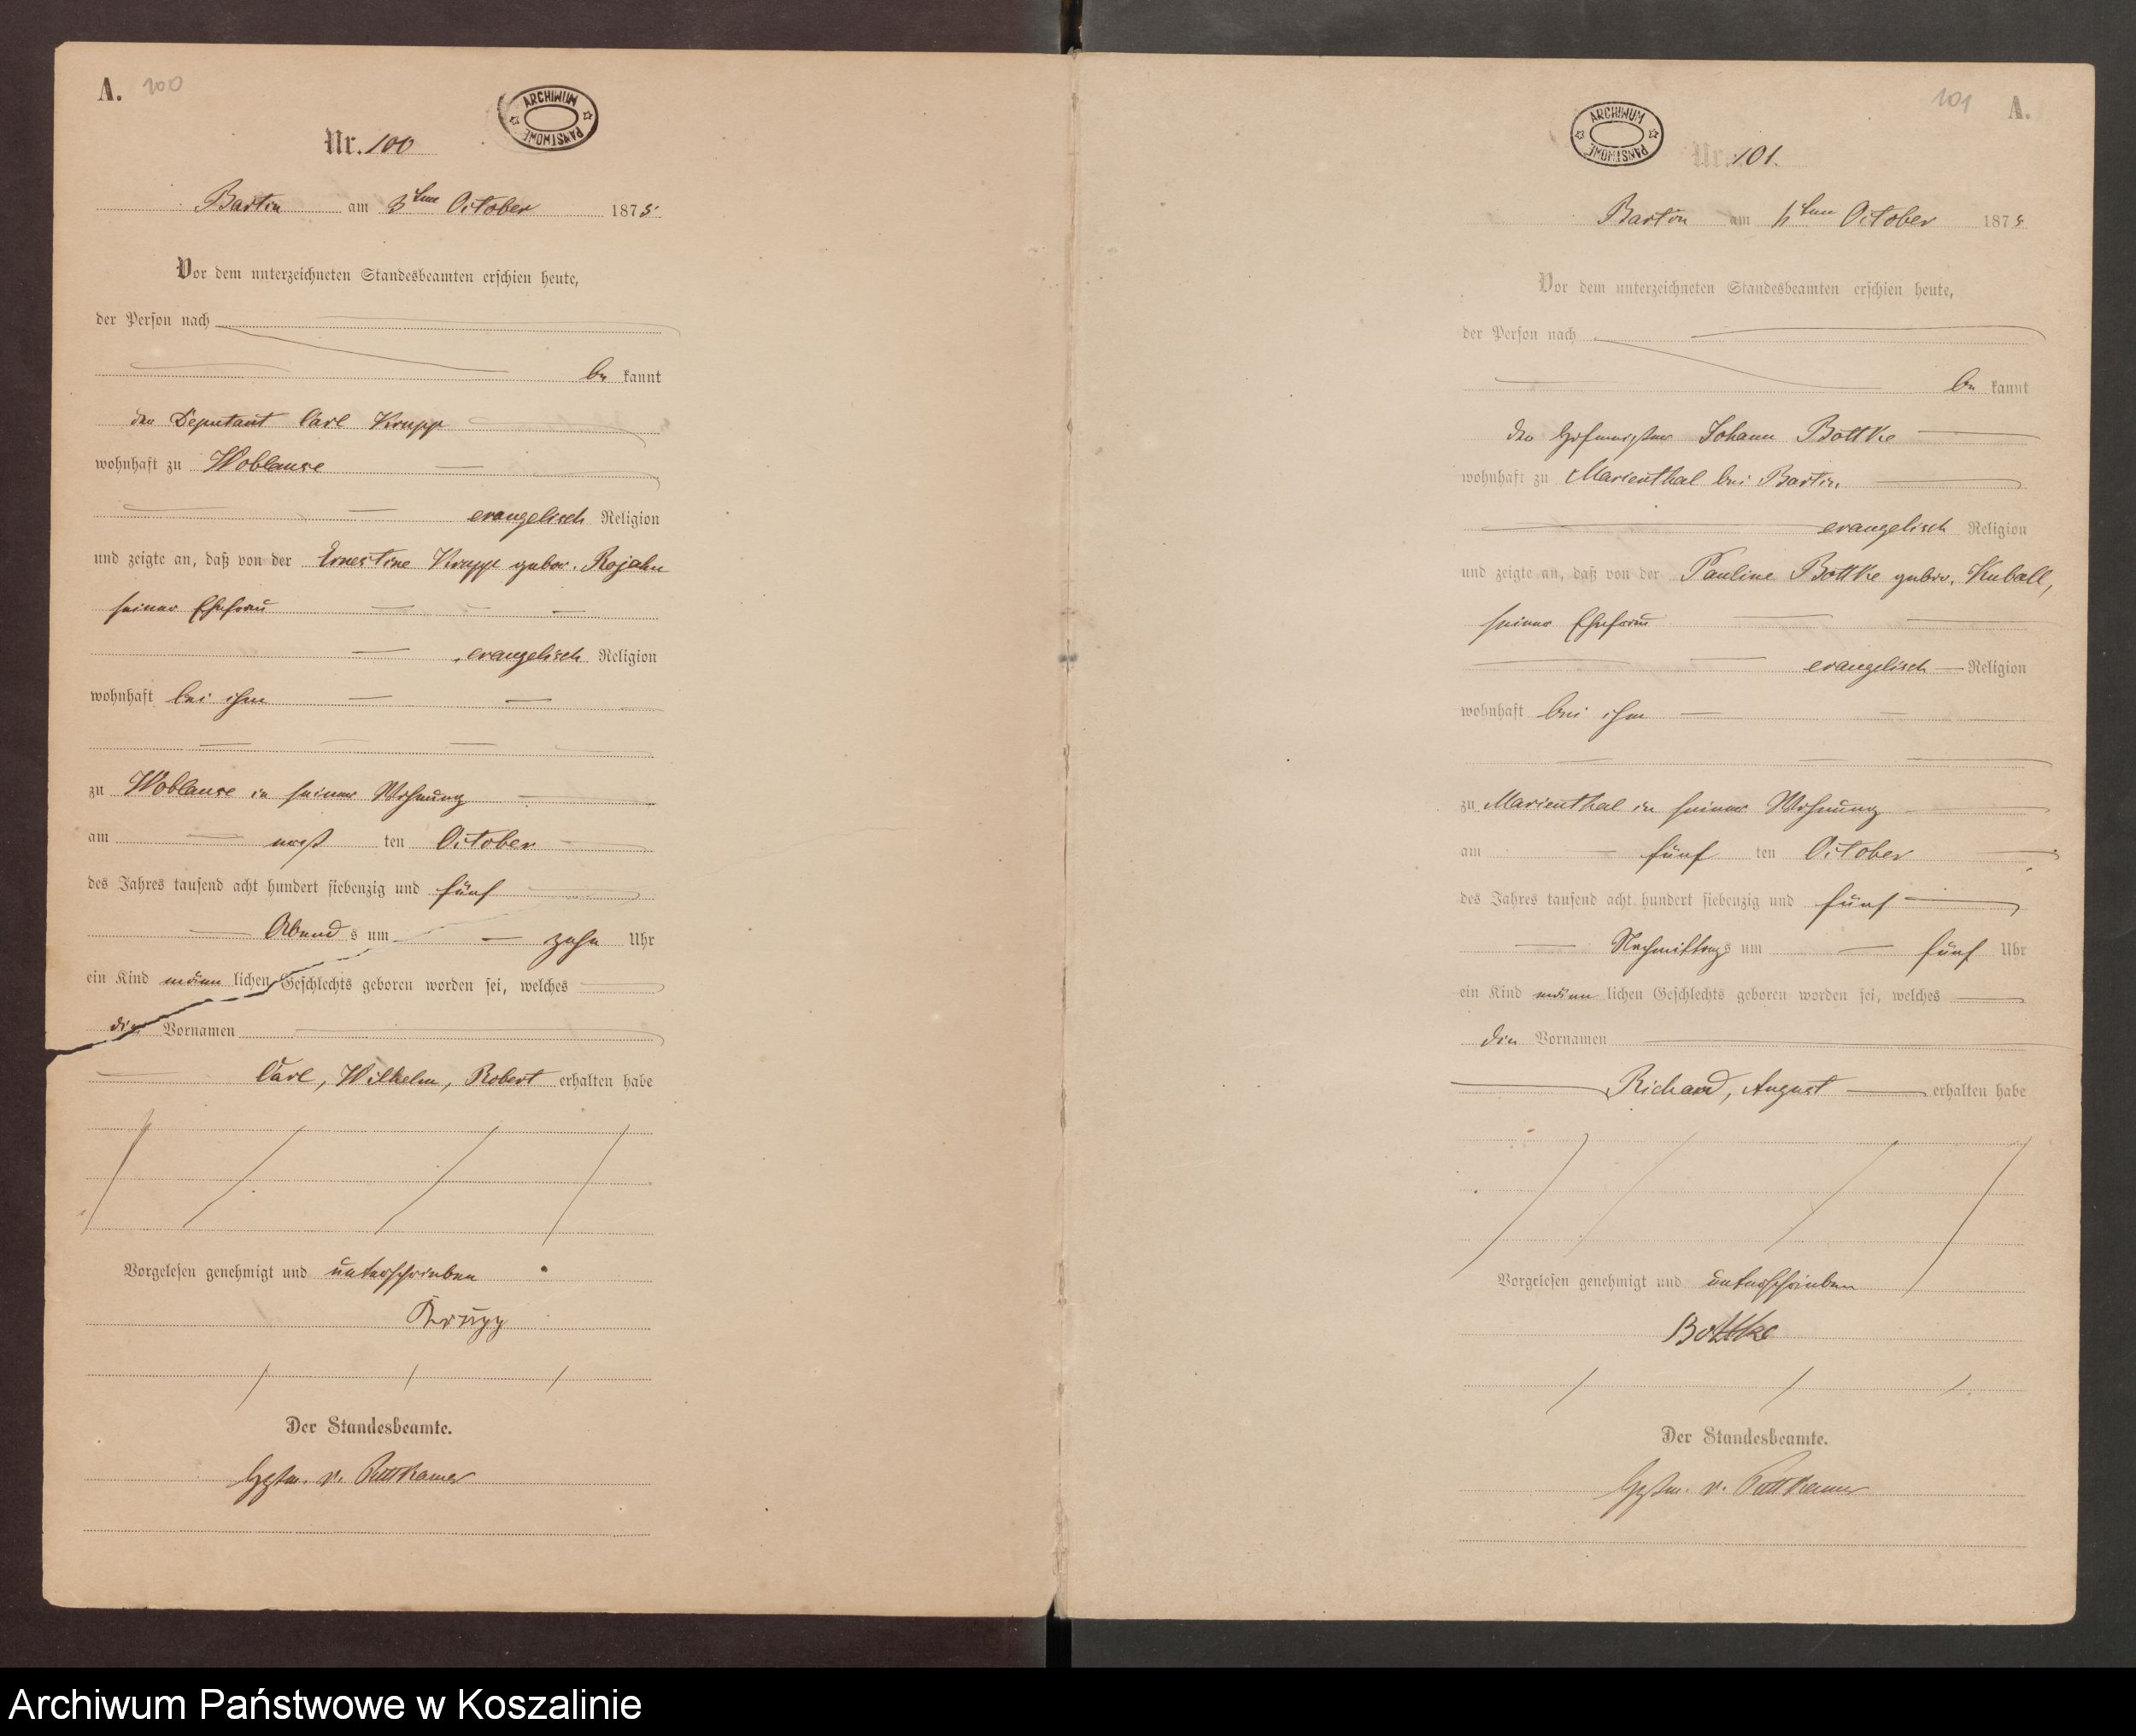 A. 100
ARCHIWUM PAŃSTWOWE
Nr. 100
Bartin am 3ten October 1875
Vor dem unterzeichneten Standesbeamten erschien heute,
der Person nach
be kannt
der Deputant Carl Krupp
wohnhaft zu Woblanse
evangelisch Religion
und zeigte an, daß von der Ernestine Krupp gebor. Rojahn
seiner Ehefrau
evangelisch Religion
wohnhaft bei ihm
zu Woblanse in seiner Wohnung
am ten October
des Jahres tausend acht hundert siebenzig und fünf
Abend s um zehn Uhr
ein Kind männ lichen Geschlechts geboren worden sei, welches
die Vornamen
Carl, Wilhelm, Robert erhalten habe
Vorgelesen genehmigt und unterschrieben
Krupp
Der Standesbeamte.
v. Puttkamer
101 A.
ARCHIWUM PAŃSTWOWE
Nr. 101.
Bartin am ten October 1875
Vor dem unterzeichneten Standesbeamten erschien heute,
der Person nach
be kannt
der Hofmeister Johann Bottke
wohnhaft zu Marienthal bei Bartin
evangelisch Religion
und zeigte an, daß von der Pauline Bottke gebor. Kuball,
seiner Ehefrau
evangelisch Religion
wohnhaft bei ihm
zu Marienthal in seiner Wohnung
am fünf ten October
des Jahres tausend acht hundert siebenzig und fünf
Nachmittag s um fünf Uhr
ein Kind männ lichen Geschlechts geboren worden sei, welches
die Vornamen
Richard, August erhalten habe
Vorgelesen genehmigt und unterschrieben
Bottke
Der Standesbeamte.
v. Puttkamer
Archiwum Państwowe w Koszalinie